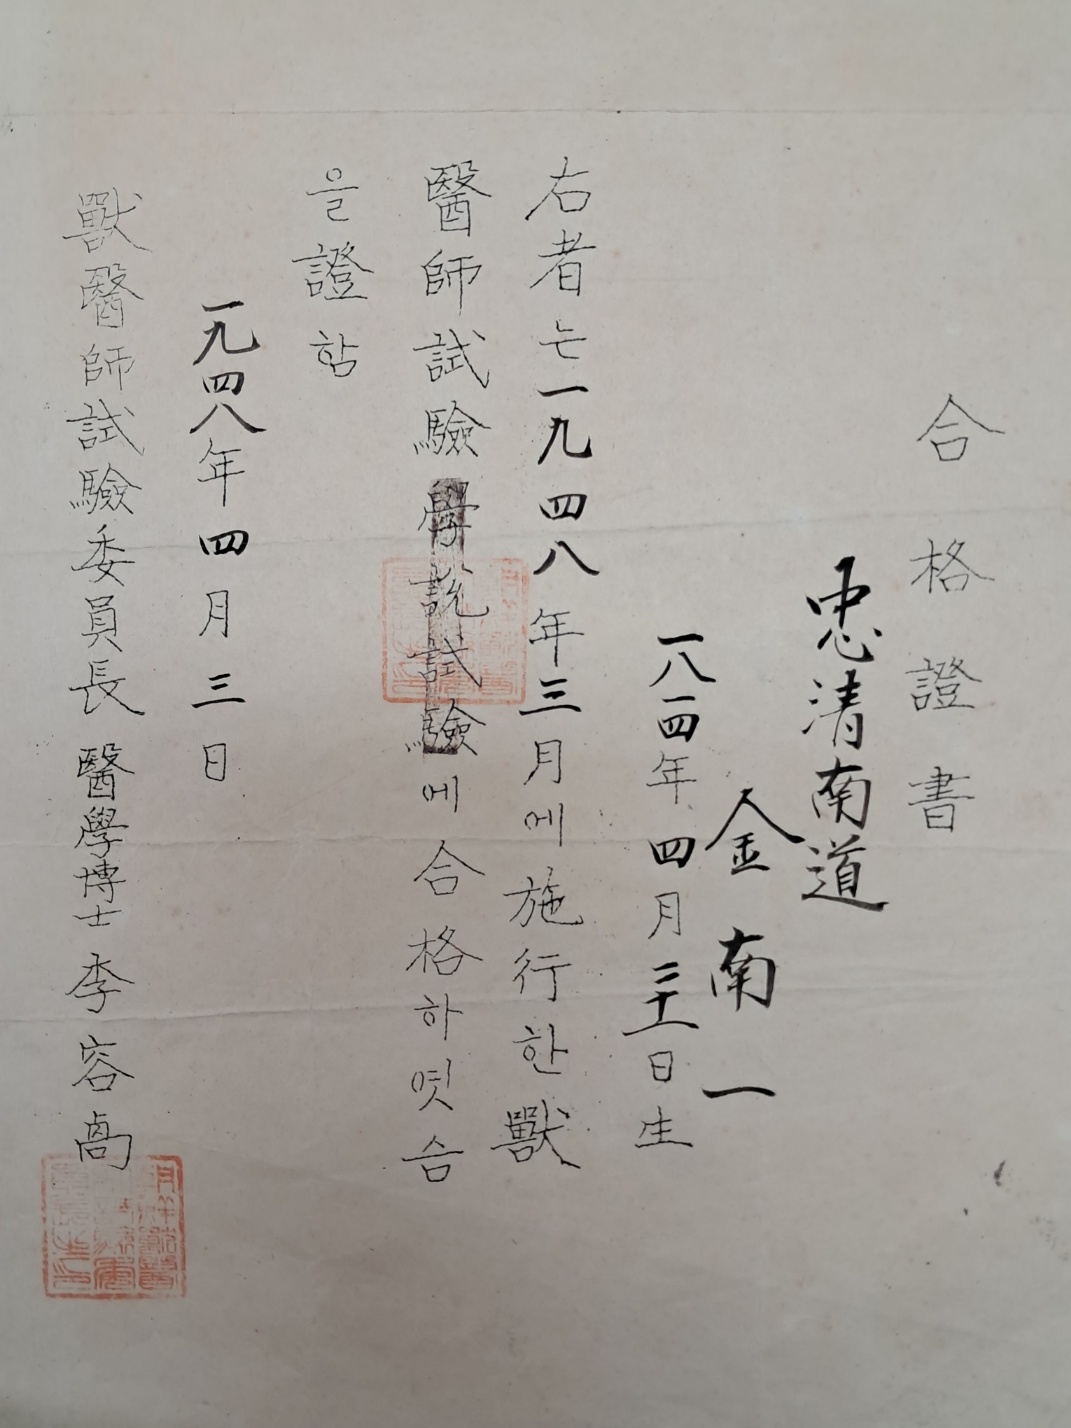 合格證書
忠清南道
金南一
一八一四年四月三十一日生
右者는一九四八年三月에施行한獸
醫師試驗學說試驗에合格하엿슴
을證함
一九四八年四月三日
獸醫師試驗委員長 醫學博士 李容卨